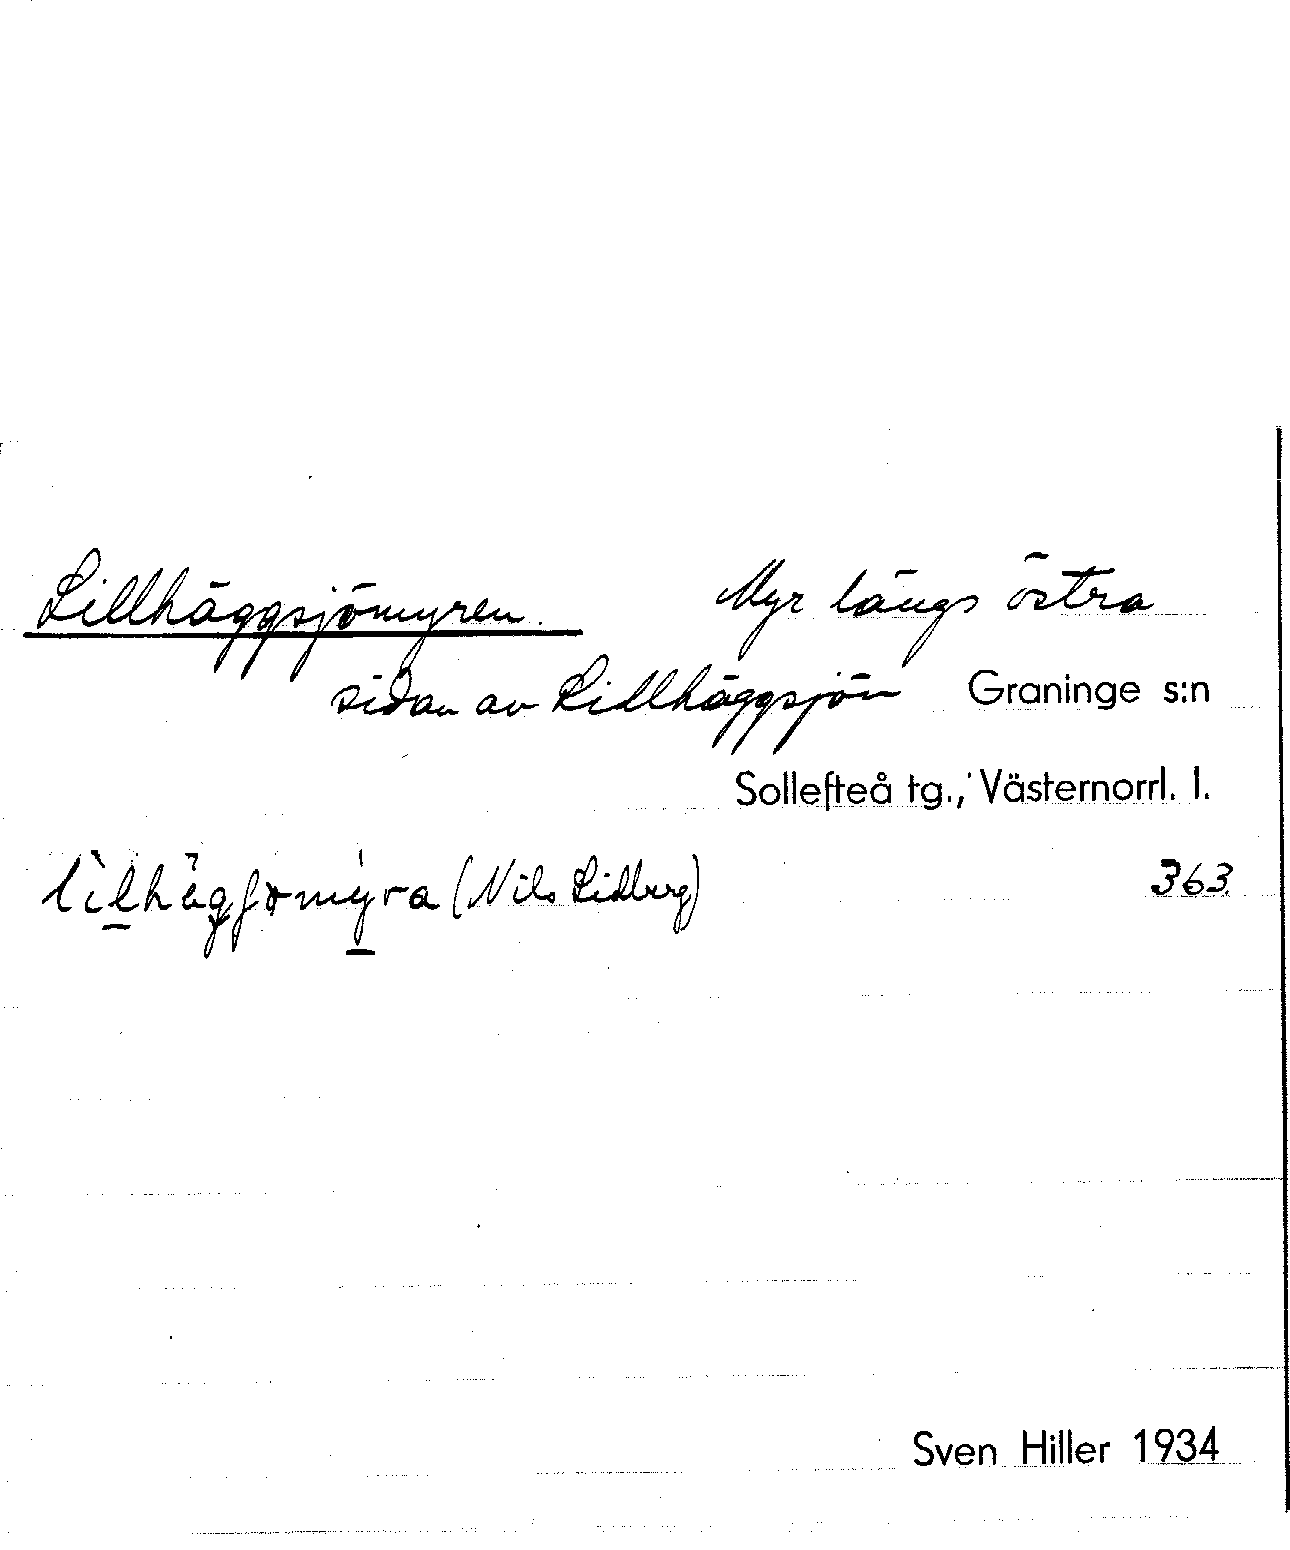 Lillhäggsjömyren. Myr längs östra
sidan av Lillhäggsjön Graninge s:n
Sollefteå tg., Västernorrl. l.
(Nils Lidberg) 363.
Sven Hiller 1934